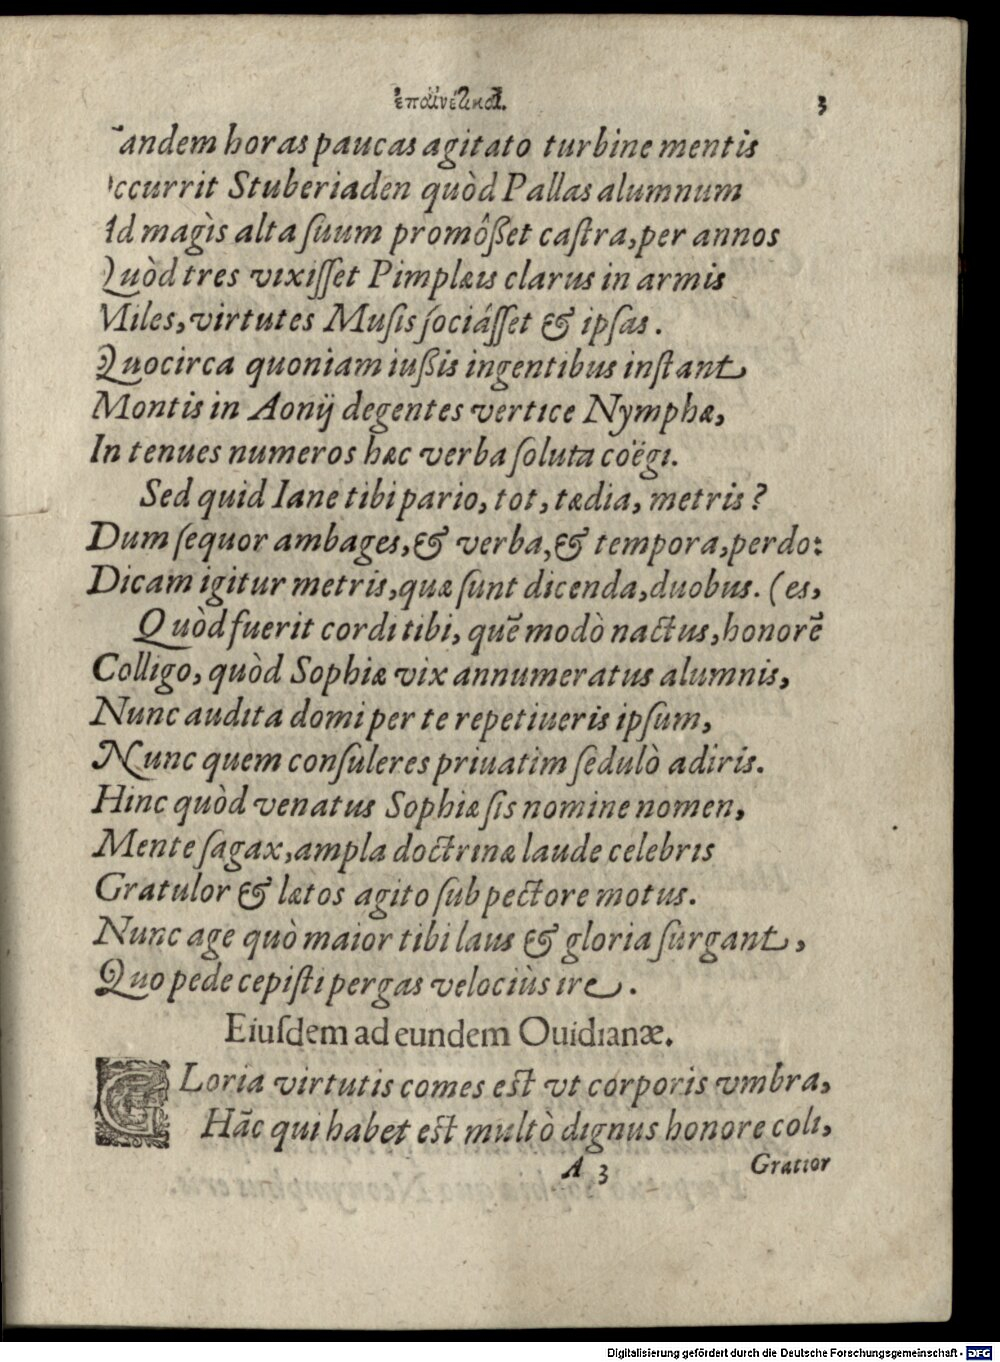 ἐπαινετικά. 3
andem horas paucas agitato turbine mentis
ccurrit Stuberiaden quòd Pallas alumnum
Ad magìs alta ſuum promôßet caſtra, per annos
Quòd tres vixiſſet Pimplæis clarus in armis
Miles, virtutes Muſis ſociáſſet & ipſas.
Quocirca quoniam iußis ingentibus inſtant
Montis in Aonij degentes vertice Nymphæ,
In tenues numeros hæc verba ſoluta coëgi.
Sed quid Iane tibi pario, tot, tædia, metris?
Dum ſequor ambages, & verba, & tempora, perdo:
Dicam igitur metris, quæ ſunt dicenda, duobus. (es,
Quòd fuerit cordi tibi, quē modò nactus, honorē
Colligo, quòd Sophiæ vix annumeratus alumnis,
Nunc audita domi per te repetiueris ipſum,
Nunc quem conſuleres priuatim ſedulò adiris.
Hinc quòd venatus Sophiæ ſis nomine nomen,
Mente ſagax, ampla doctrinæ laude celebris
Gratulor & lætos agito ſub pectore motus.
Nunc age quò maior tibi laus & gloria ſurgant,
Quo pede cepiſti pergas velociùs ire.
Eiuſdem ad eundem Ouidianæ.
GLoria virtutis comes eſt vt corporis vmbra,
Hāc qui habet eſt multò dignus honore coli,
A 3 Gratior
Digitalisierung gefördert durch die Deutsche Forschungsgemeinschaft - DFG